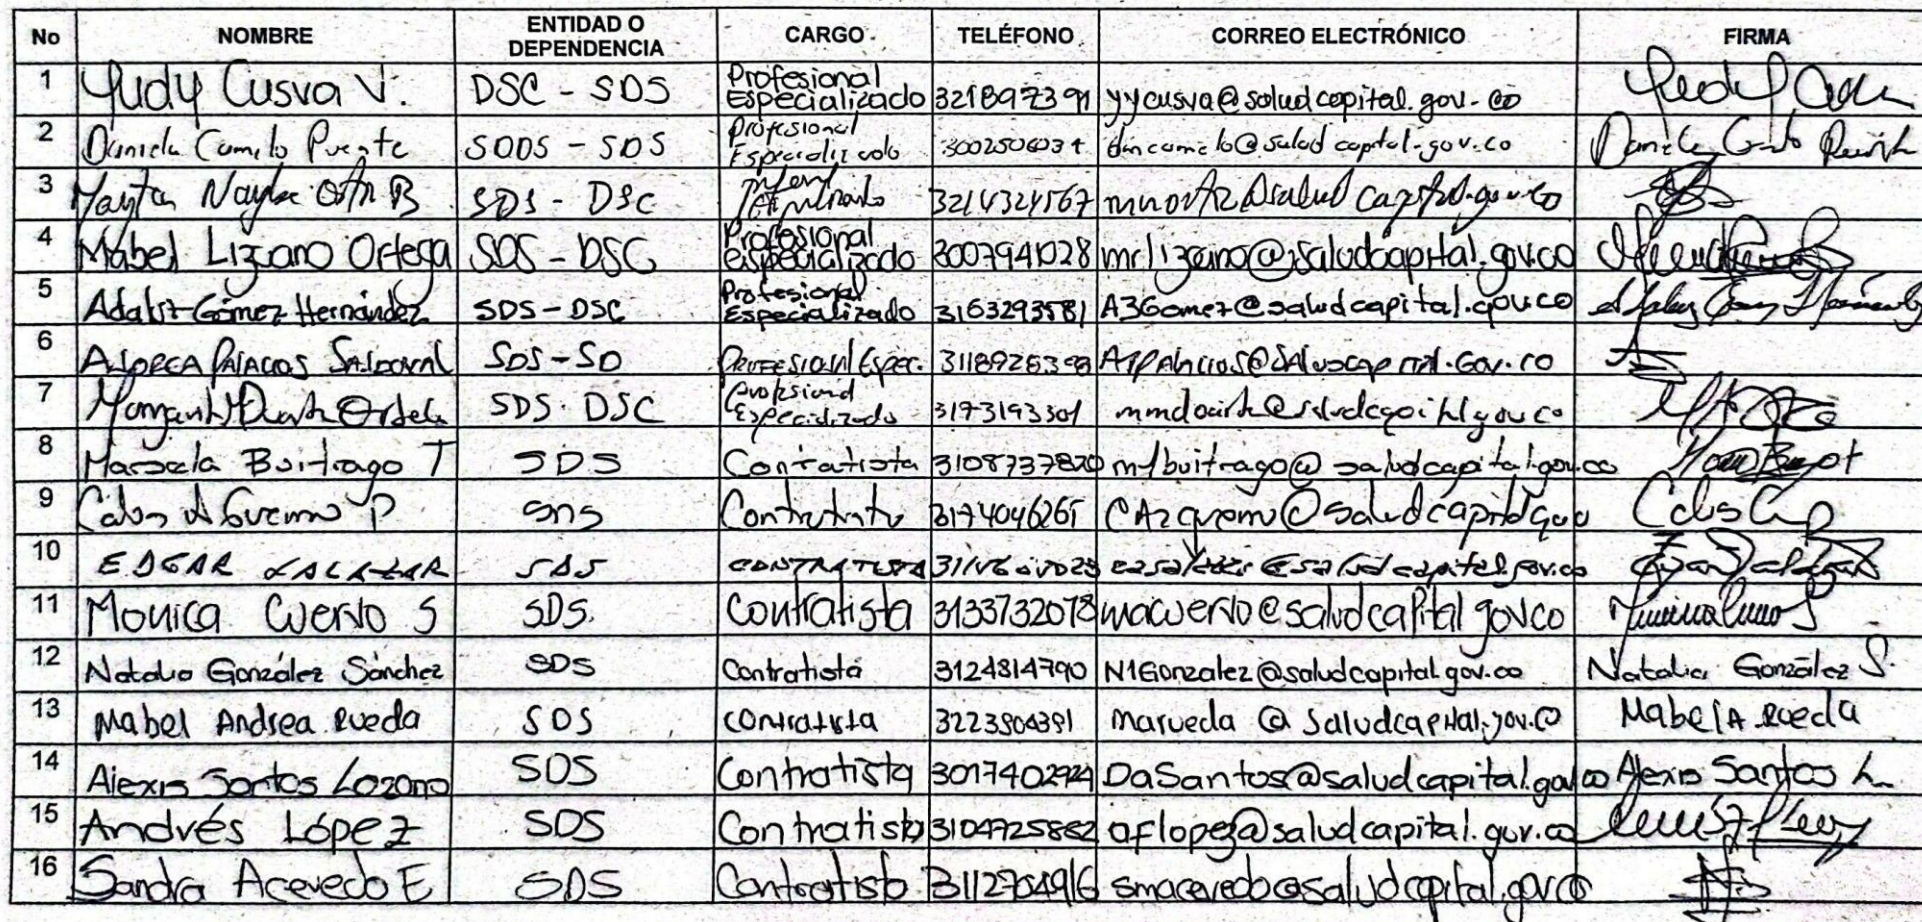 No NOMBRE ENTIDAD O DEPENDENCIA CARGO TELÉFONO CORREO ELECTRÓNICO FIRMA
1 Yudy Cusva V. DSC - SDS Profesional Especializado 3218973991 yycusva@saludcapital.gov.co
2 Daniela Camelo Puente SDDS - SDS Profesional Especializado dmcamelo@saludcapital.gov.co Daniela Camelo Puente
3 SDS - DSC 3214324567
4 Mabel Lizcano Ortega SDS - DSC Profesional especializado 3007941028 mrlizcano@saludcapital.gov.co
5 Adaluz Gómez Hernández SDS - DSC Profesional Especializado 3163293581 A3Gomez@saludcapital.gov.co
6 Palacios Sandoval SDS - SD Profesional Espec.
7 SDS. DSC Profesional Especializado 3173193301
8 Marcela Buitrago T SDS Contratista 3108737820 mlbuitrago@saludcapital.gov.co
9 Contratista 3174046265
10 EDGAR SALAZAR SDS CONTRATISTA
11 Monica Cuervo S SDS. Contratista 3133732078 macuervo@saludcapital.gov.co
12 Natalia González Sánchez SDS Contratista 3124814790 N1Gonzalez@saludcapital.gov.co Natalia González S.
13 Mabel Andrea Rueda SDS contratista 3223804391 marueda@saludcapital.gov.co Mabel A Rueda
14 Alexis Santos Lozano SDS Contratista 3017402924 DaSantos@saludcapital.gov.co Alexis Santos L
15 Andrés López SDS Contratista 3104725882 aflopez@saludcapital.gov.co
16 Sandra Acevedo E SDS Contratista 3112704916 smacevedo@saludcapital.gov.co